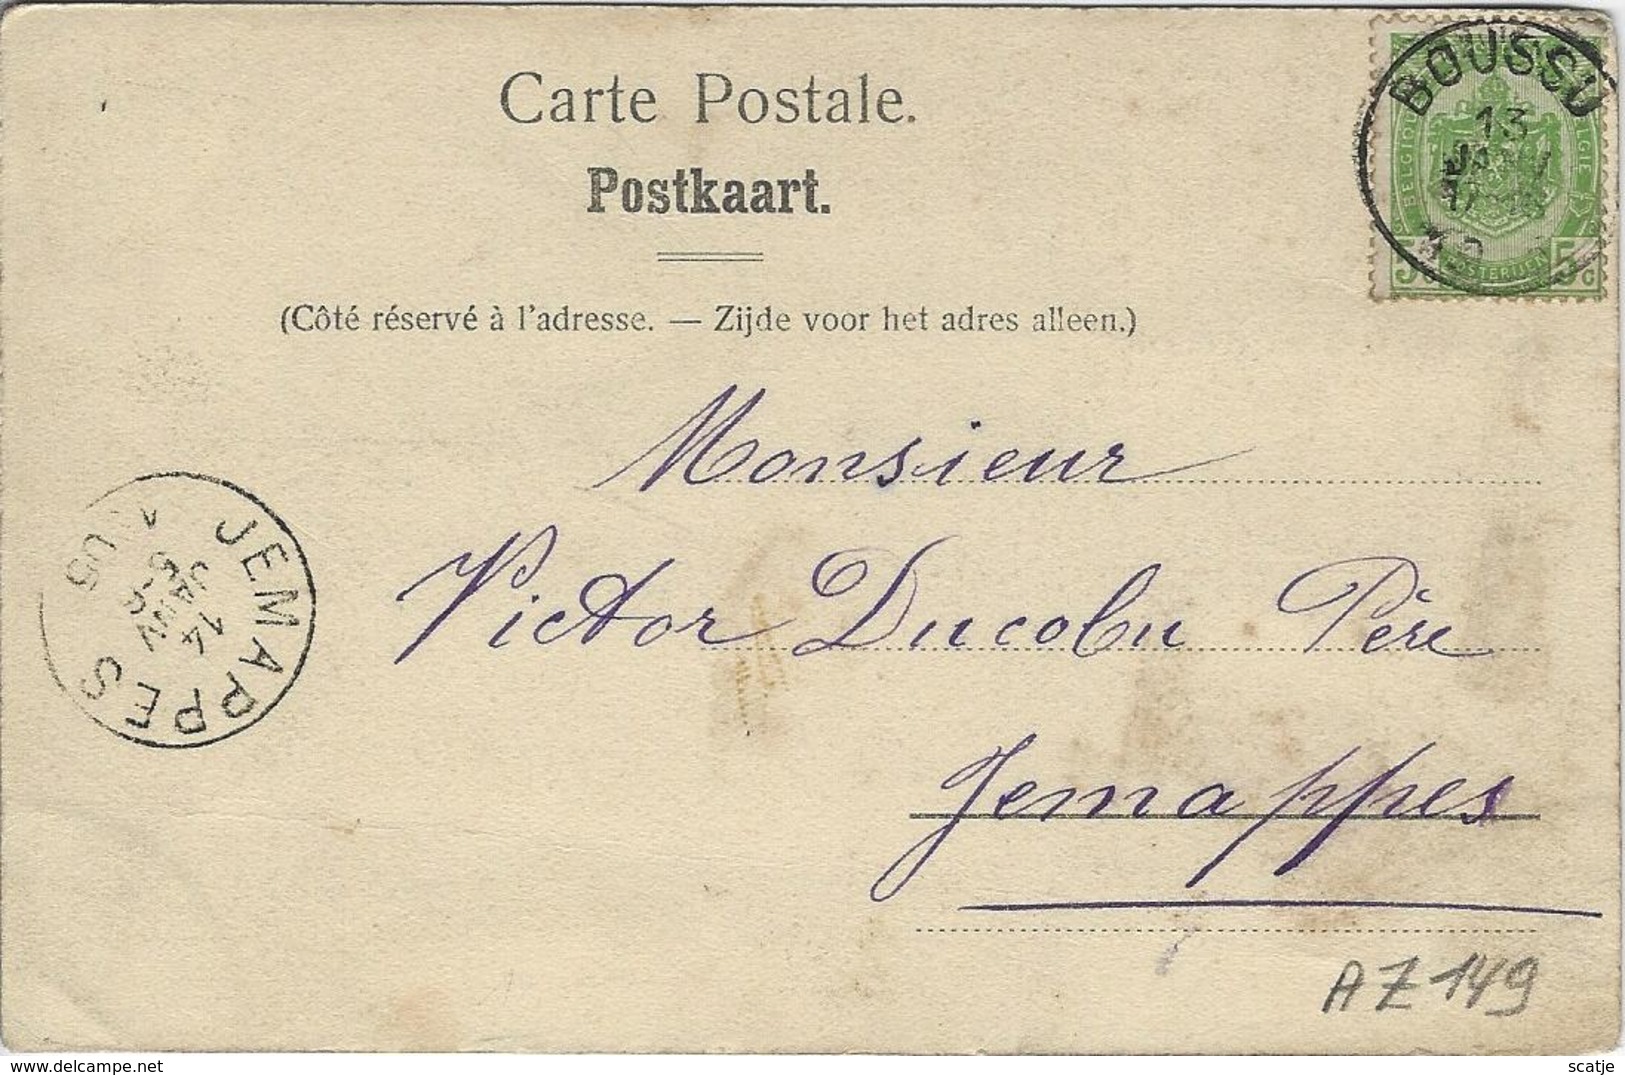 Carte Postale.
Postkaart.
(Côté réservé à l'adresse. — Zijde voor het adres alleen.)
BOUSSU
13
JANV
BELGIQUE
BELGIE
5
5 C
JEMAPPES
14
JANV
05
Monsieur
Victor Ducobu Père
Jemappes
AZ149
delcampe.net
scatje